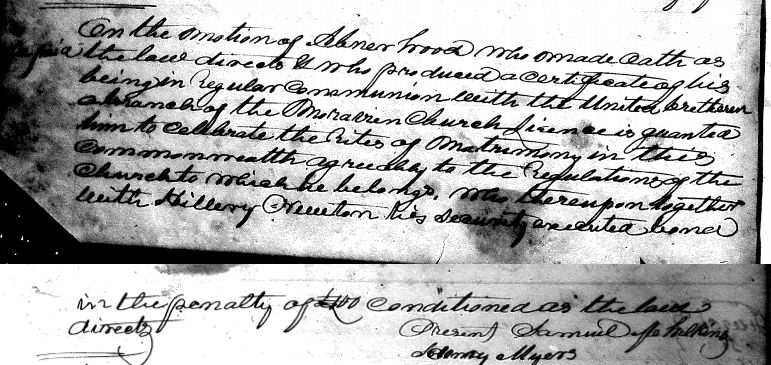 On the motion of Abner Wood who made oath as
the law directs & who produced a certificate of his
being in regular communion with the United Bretheren
a branch of the Moravien Church licence is granted
him to celebrate the rites of Matrimony in this
commonwealth agreeably to the regulations of the
Church to which he belongs. Who thereupon together
with Hillery Newton his security executed bond
in the penalty of £ conditioned as the law
directs
Present Samuel
Henry Myers